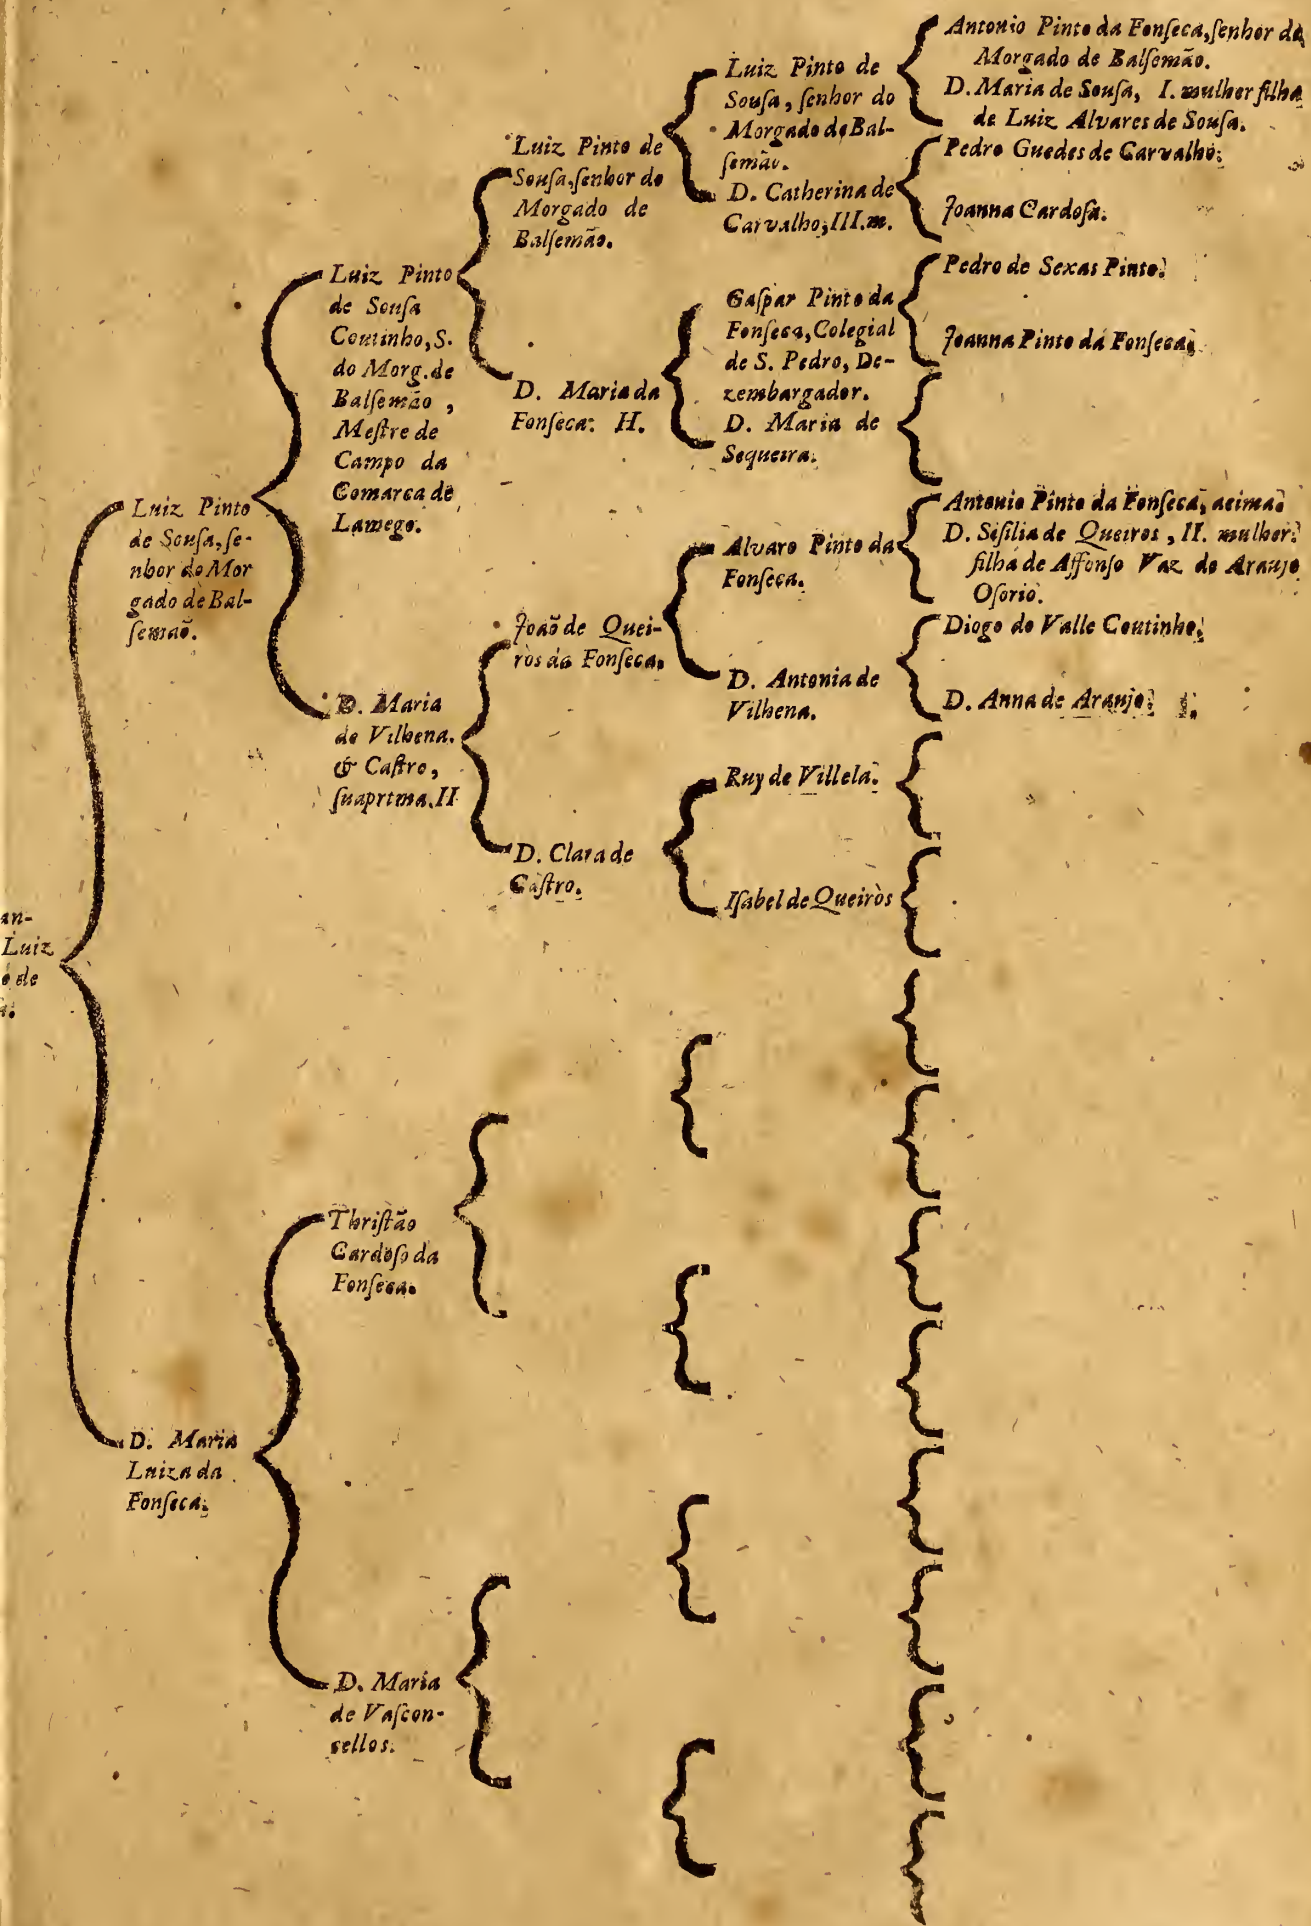 Luiz
de
Luiz Pinto
de Souſa, ſe-
nhor do Mor
gado de Bal-
ſemaõ.
D. Maria
Luiza da
Fonſeca.
Luiz Pinto
de Souſa
Coutinho, S.
do Morg. de
Balſemão,
Meſtre de
Campo da
Comarca de
Lamego.
D. Maria
de Vilhena.
& Caſtro,
ſua prima. II
Thriſtão
Cardoſo da
Fonſeca.
D. Maria
de Vaſcon-
sellos.
Luiz Pinto de
Souſa, ſenhor do
Morgado de
Balſemão.
D. Maria da
Fonſeca. H.
Joaõ de Quei-
ròs da Fonſeca.
D. Clara de
Caſtro.
Luiz Pinto de
Souſa, ſenhor do
Morgado de Bal-
ſemão.
D. Catherina de
Carvalho, III. m.
Gaſpar Pinto da
Fonſeca, Colegial
de S. Pedro, De-
zembargador.
D. Maria de
Sequeira.
Alvaro Pinto da
Fonſeca.
D. Antonia de
Vilhena.
Ruy de Villela.
Iſabel de Queiròs
Antonio Pinto da Fonſeca, ſenhor do
Morgado de Balſemão.
D. Maria de Souſa, I. mulher filha
de Luiz Alvares de Souſa.
Pedro Guedes de Carvalho.
Joanna Cardoſa.
Pedro de Sexas Pinto.
Joanna Pinto da Fonſeca.
Antonio Pinto da Fonſeca, acima
D. Siſilia de Queiros, II. mulher.
filha de Affonſo Vaz de Araujo
Oſorio.
Diogo do Valle Coutinho.
D. Anna de Araujo.